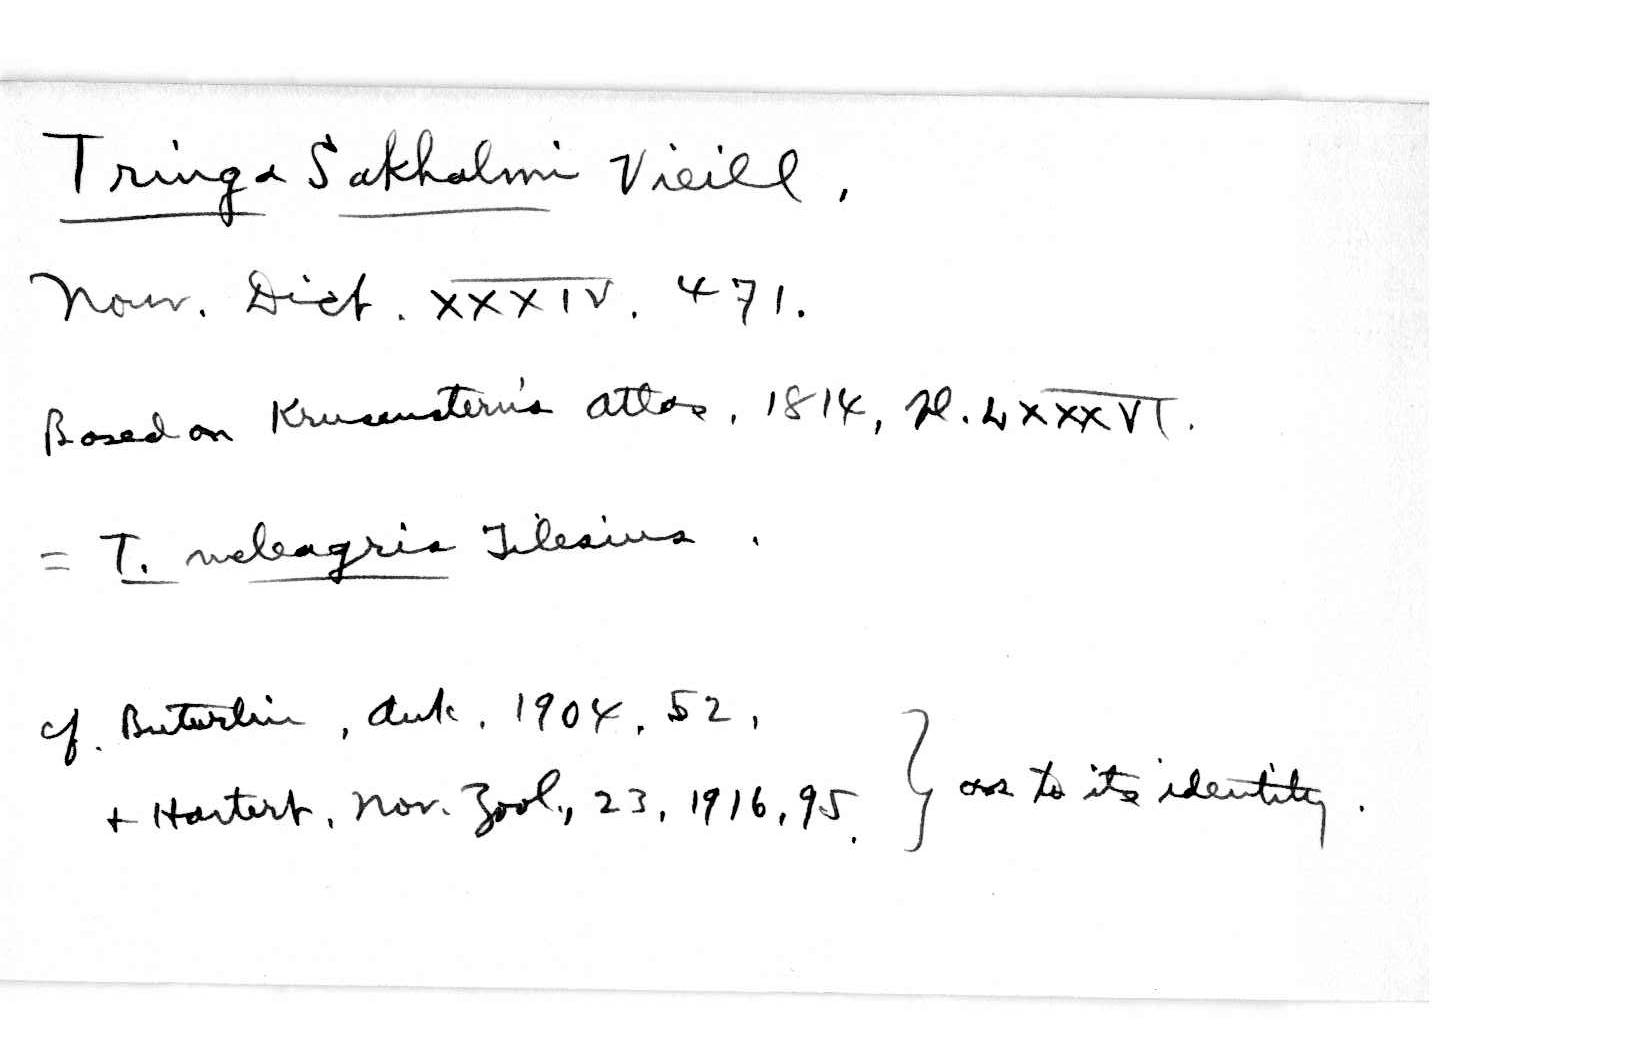 Tringa Sakhalmi Vieill,
Nouv. Dict. XXXIV. 471.
Based on Krusenstern's atlas, 1814, Pl. LXXXVI.
= T. meleagris Tilesius.
cf. Buturlin, Auk, 1904, 52,
+ Hartert, Nov. Zool., 23, 1916, 95. } as to its identity.